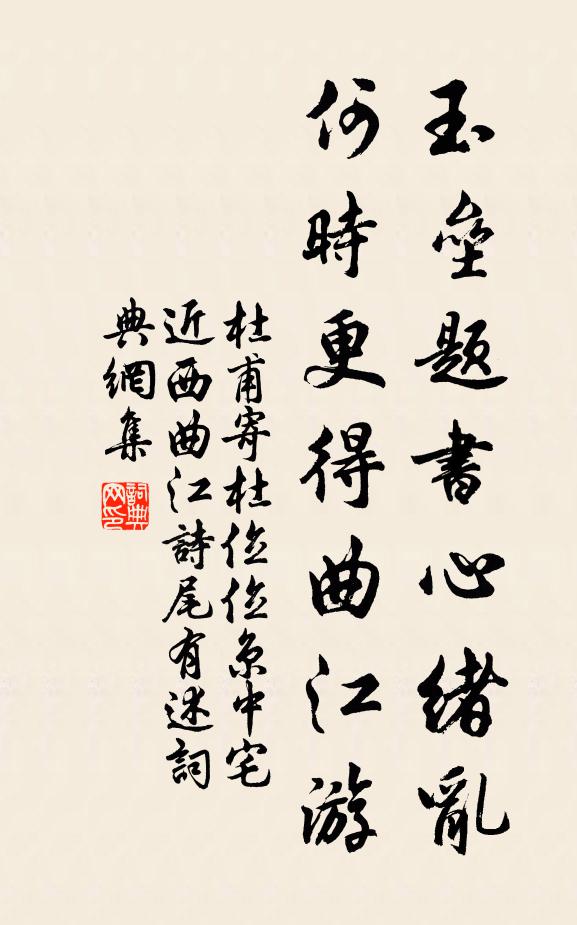 玉壘題書心緒亂
何時更得曲江游
杜甫寄杜位位京中宅
近西曲江詩尾有述詞
典網集
詞典网印